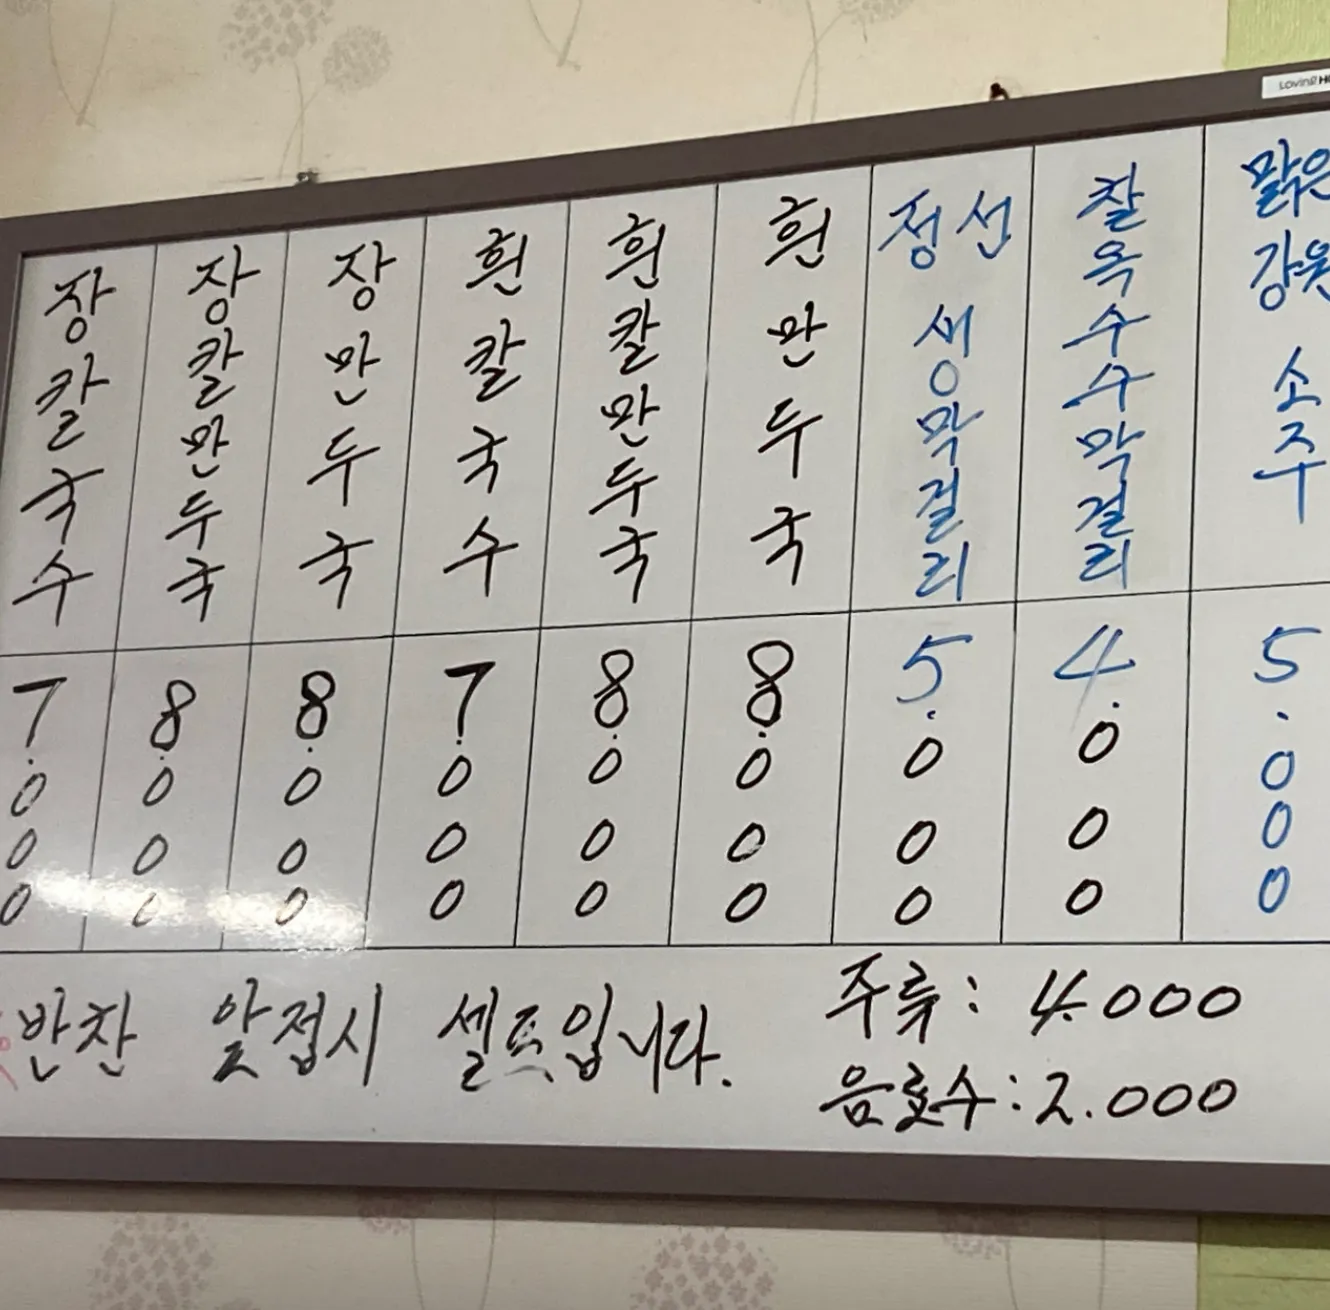 장칼국수
장칼만두국
장만두국
흰칼국수
흰칼만두국
흰만두국
정선 생막걸리
찰옥수수막걸리
맑은강원 소주
7.000
8.000
8.000
7.000
8.000
8.000
5.000
4.000
5.000
반찬 앞접시 셀프입니다.
주류: 4.000
음료수: 2.000